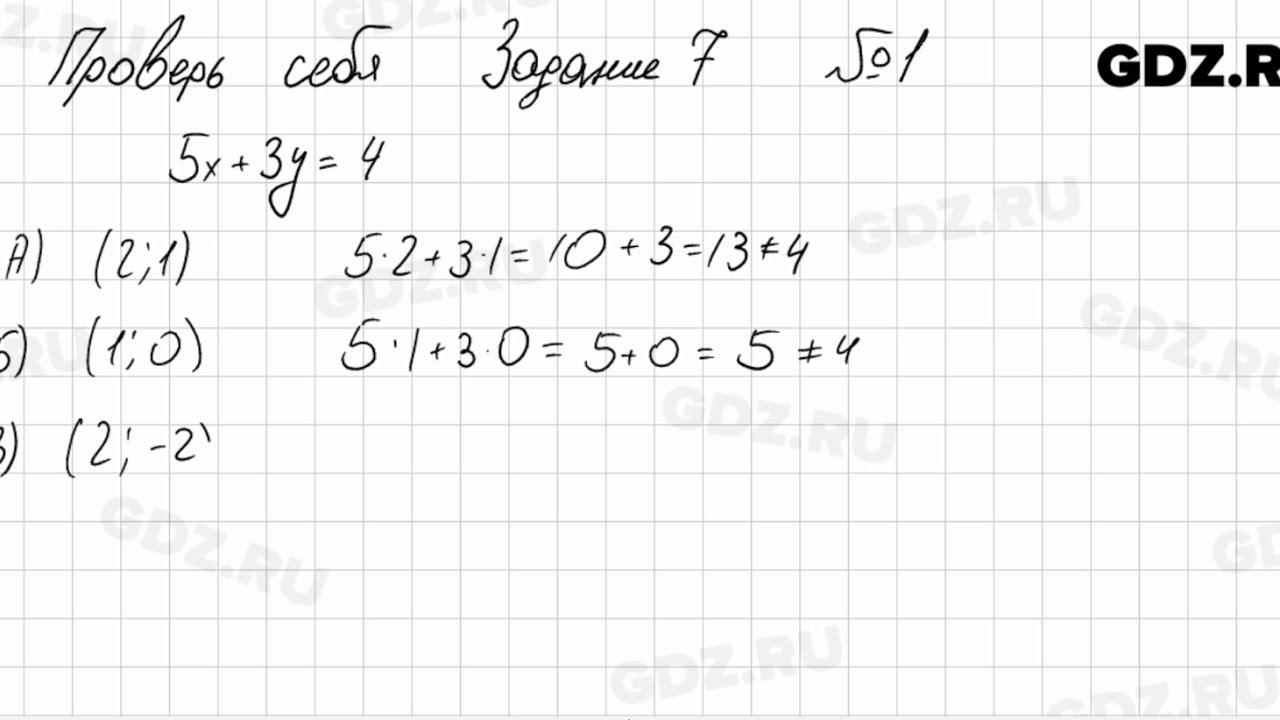 Проверь себя Задание 7 №1
GDZ.R
5x+3y=4
А) (2;1) 5·2+3·1=10+3=13≠4
б) (1;0) 5·1+3·0=5+0=5≠4
в) (2;-2)
GDZ.RU
GDZ.RU
GDZ.RU
GDZ.RU
GDZ.RU
GDZ.RU